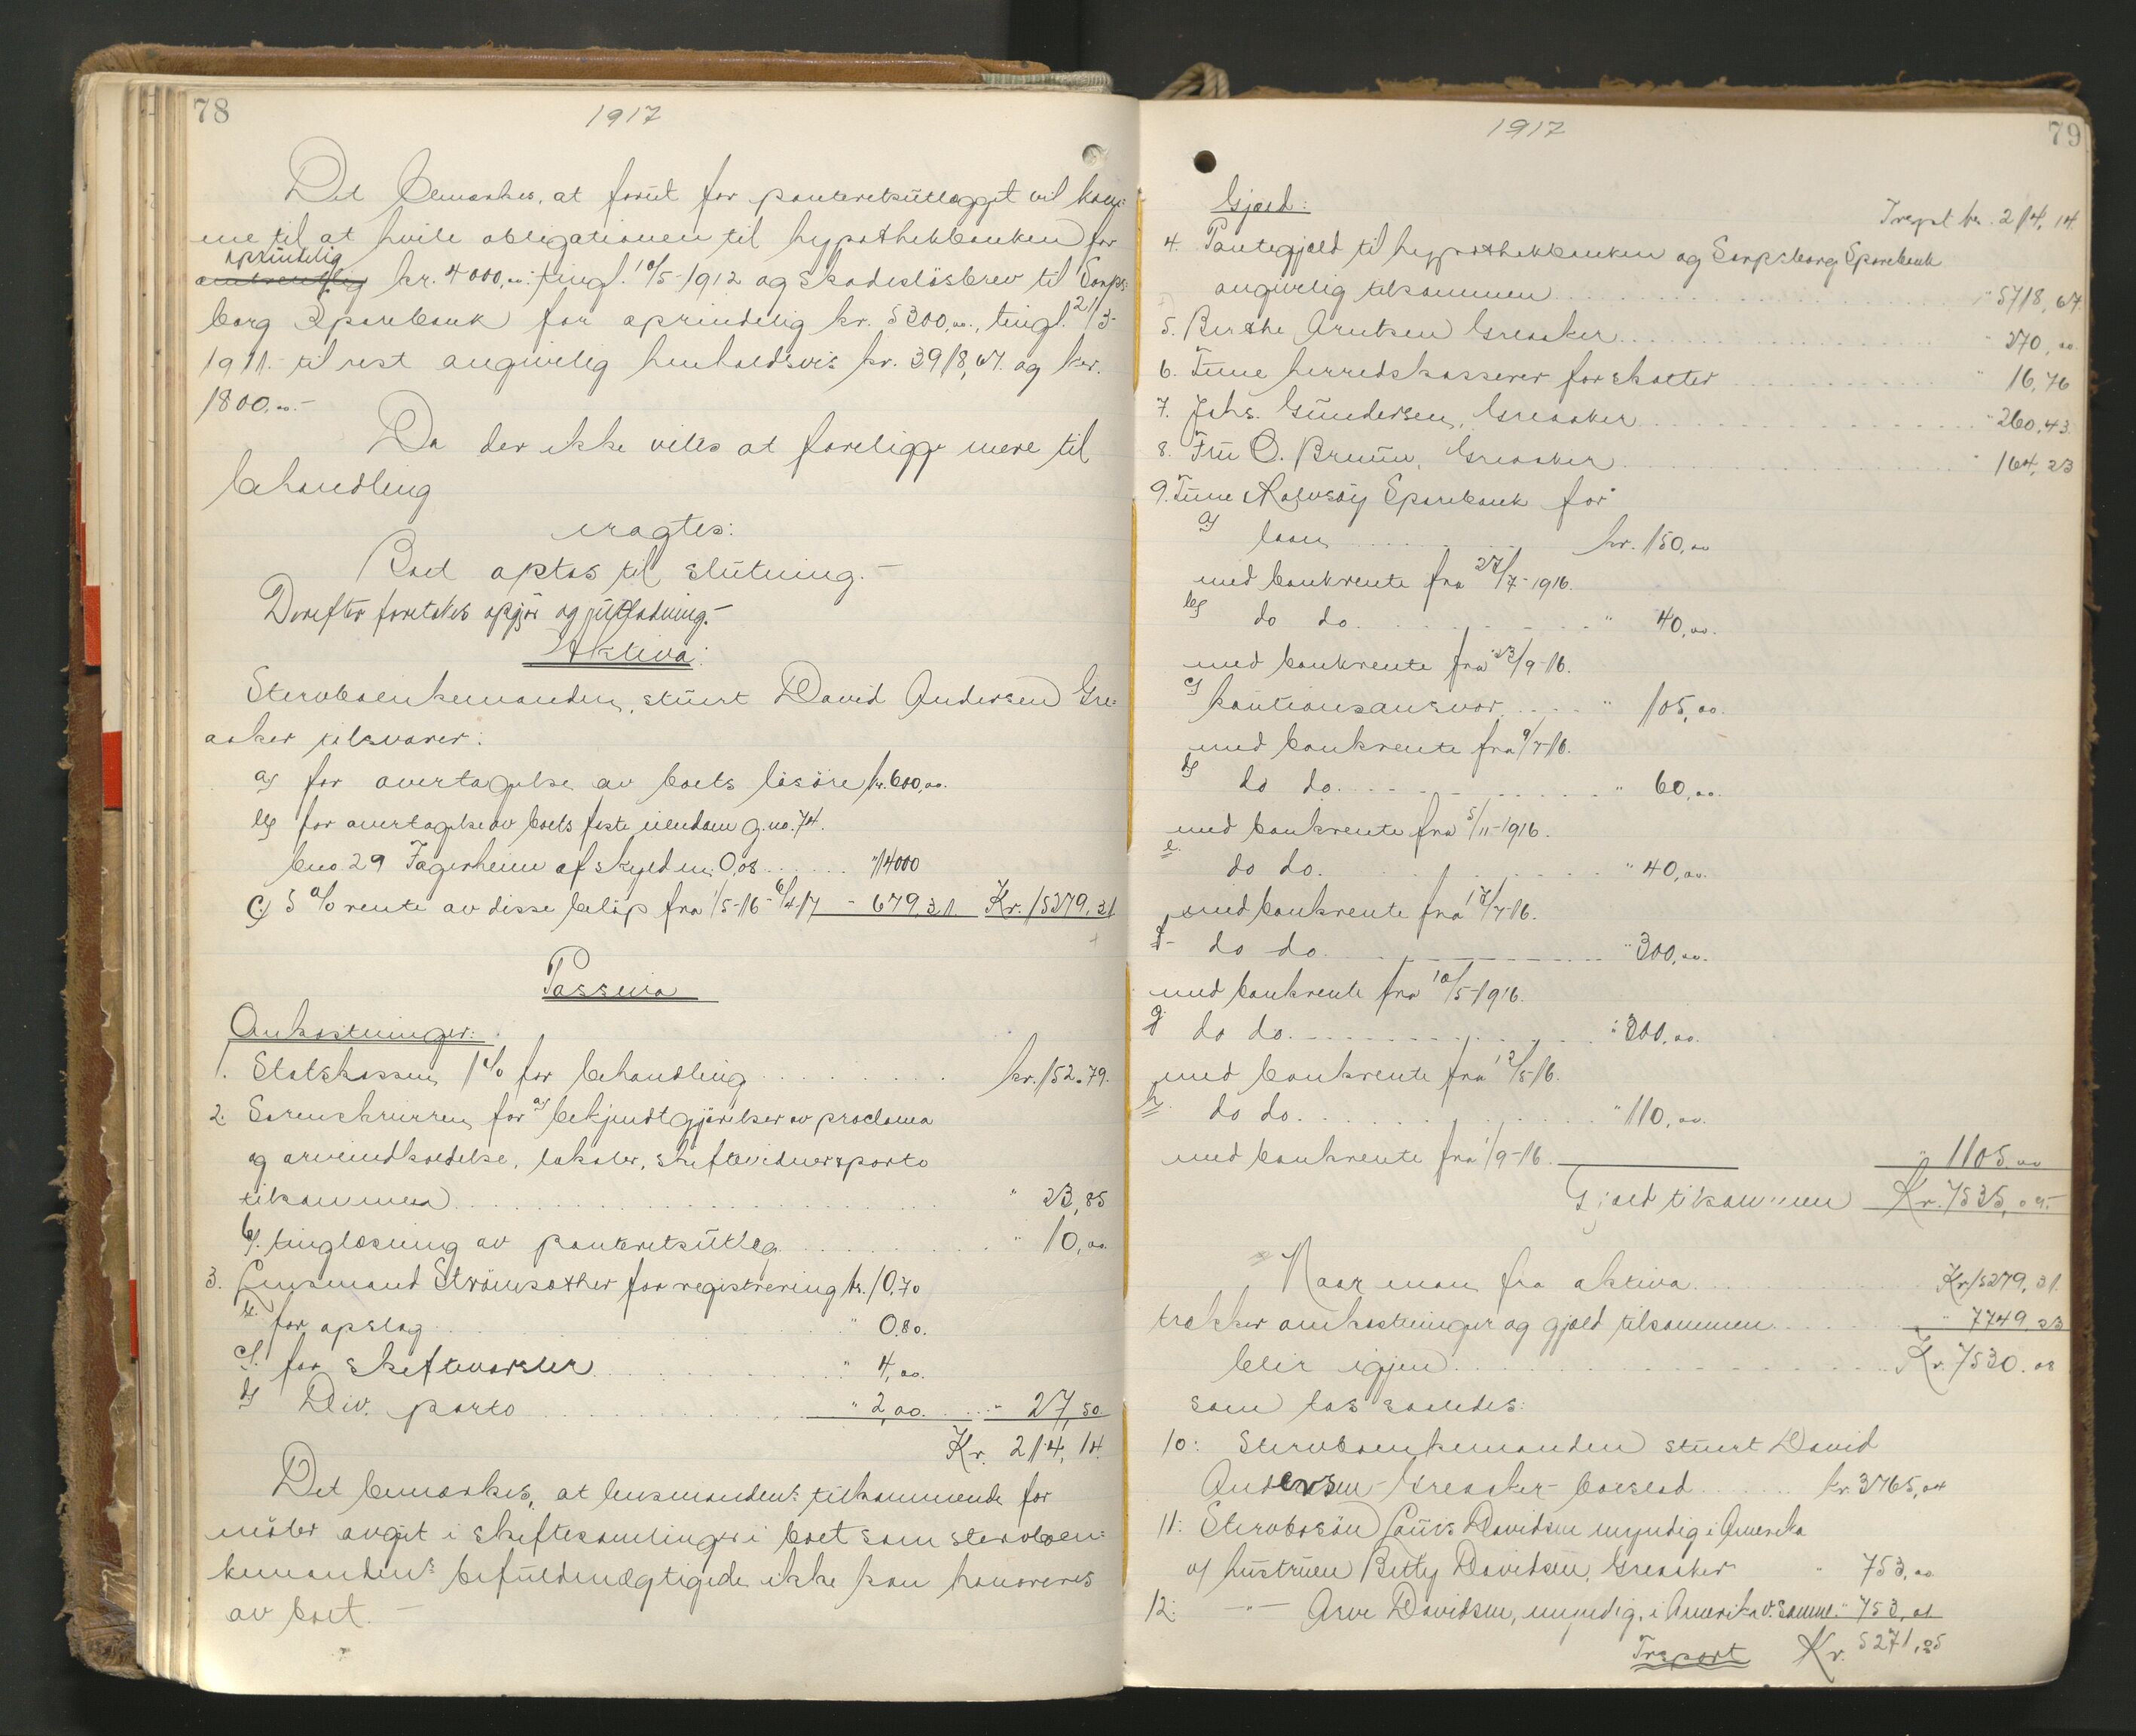 78
1917
Det bemærkes, at forut for panteretsutlægget vil kom-
me til at hvile obligationen til hypothekbanken for
oprindelig
kr. 4000,00 tingl. 10/5-1912 og skadesløsbrev til Sarps-
borg Sparebank for oprindelig kr. 5300,00, tingl. 21/3-
1911 - til rest angivelig henholdsvis kr. 3918,67 og kr.
1800,00.-
Da der ikke vites at foreligge mere til
behandling
vragtes:
Boet optas til slutning.-
Derefter foretokes opgjør og utlodning.-
Aktiva:
Stervboenkemanden, stuert David Andersen Gre-
aaker tilsvarer:
a) for overtagelse av boets løsøre kr. 600,00.
b) for overtagelse av boets faste eiendom g.no. 74.
bno 29 Fagerheim af skyld m. 0,08 ...... " 14000
c) 5 % rente av disse beløp fra 1/5-16 - 6/4 17 - 679,31. Kr. 15279,31
Passiva
Omkostninger:
1. Statskassen 1% for behandling .......... kr. 152.79.
2. Sorenskriveren for a) bekjendtgjørelser av proclama
og arveindkaldelse, lokaler, skiftevidner & porto
tilsammen .......... " 23,85
b). tinglæsning av panteretsutlæg .......... " 10,00
3. Lensmand Strømsæther for registrering kr. 10,70
b. for opslag .......... " 0,80.
c). for skiftevarsler .......... " 4,00.
d) Div. porto .......... " 2,00. .... " 27,50
Kr. 214,14.
Det bemærkes, at lensmandens tilkommende for
møter avgit i skiftesamlinger i boet som stervboen-
kemandens befuldmægtigede ikke kan honoreres
av boet.-
1917
79
Gjæld:
Trspt. kr. 214,14.
4. Pantegjæld til hypothekbanken og Sarpsborg Sparebank
angivelig tilsammen .......... " 5718,67
5. Berthe Arntsen Greaaker .......... " 270,00
6. Tune herredskasserer for skatter .......... " 16,76
7. Johs. Gundersen, Greaaker .......... " 260,43.
8. Fru O. Bruun, Greaaker .......... " 164,23
9. Tune Rolvsøy Sparebank for
a) laan .......... kr. 150,00
med bankrente fra 27/7-1916.
b) do do .......... " 40,00.
med bankrente fra 23/9-16.
c) kautionsansvar ..... " 105,00.
med bankrente fra 9/7-16.
d) do do .......... " 60,00.
med bankrente fra 5/11-1916.
e. do do .......... " 40,00.
med bankrente fra 17/7-16.
f- do do .......... " 300,00.
med bankrente fra 10/5-1916.
g. do do .......... " 300,00.
med bankrente fra 12/5-16.
h. do do .......... " 110,00.
med bankrente fra 1/9-16. " 1105,00
Gjæld tilsammen Kr. 7535,09.
Naar man fra aktiva .......... Kr. 15279,31.
trækker omkostninger og gjæld tilsammen .......... " 7749,23
blir igjen .......... Kr. 7530.08
som tas saaledes:
10: Stervboenkemanden stuert David
Andersen - Greaaker - boeslod .......... kr. 3765,04
11: Stervbosøn Louis Davidsen myndig i Amerika
v/ hustruen Betty Davidsen, Greaaker " 753,00
12: -"- Arve Davidsen, myndig, i Amerika v. samme. " 753,01
Trsport Kr. 5271,05